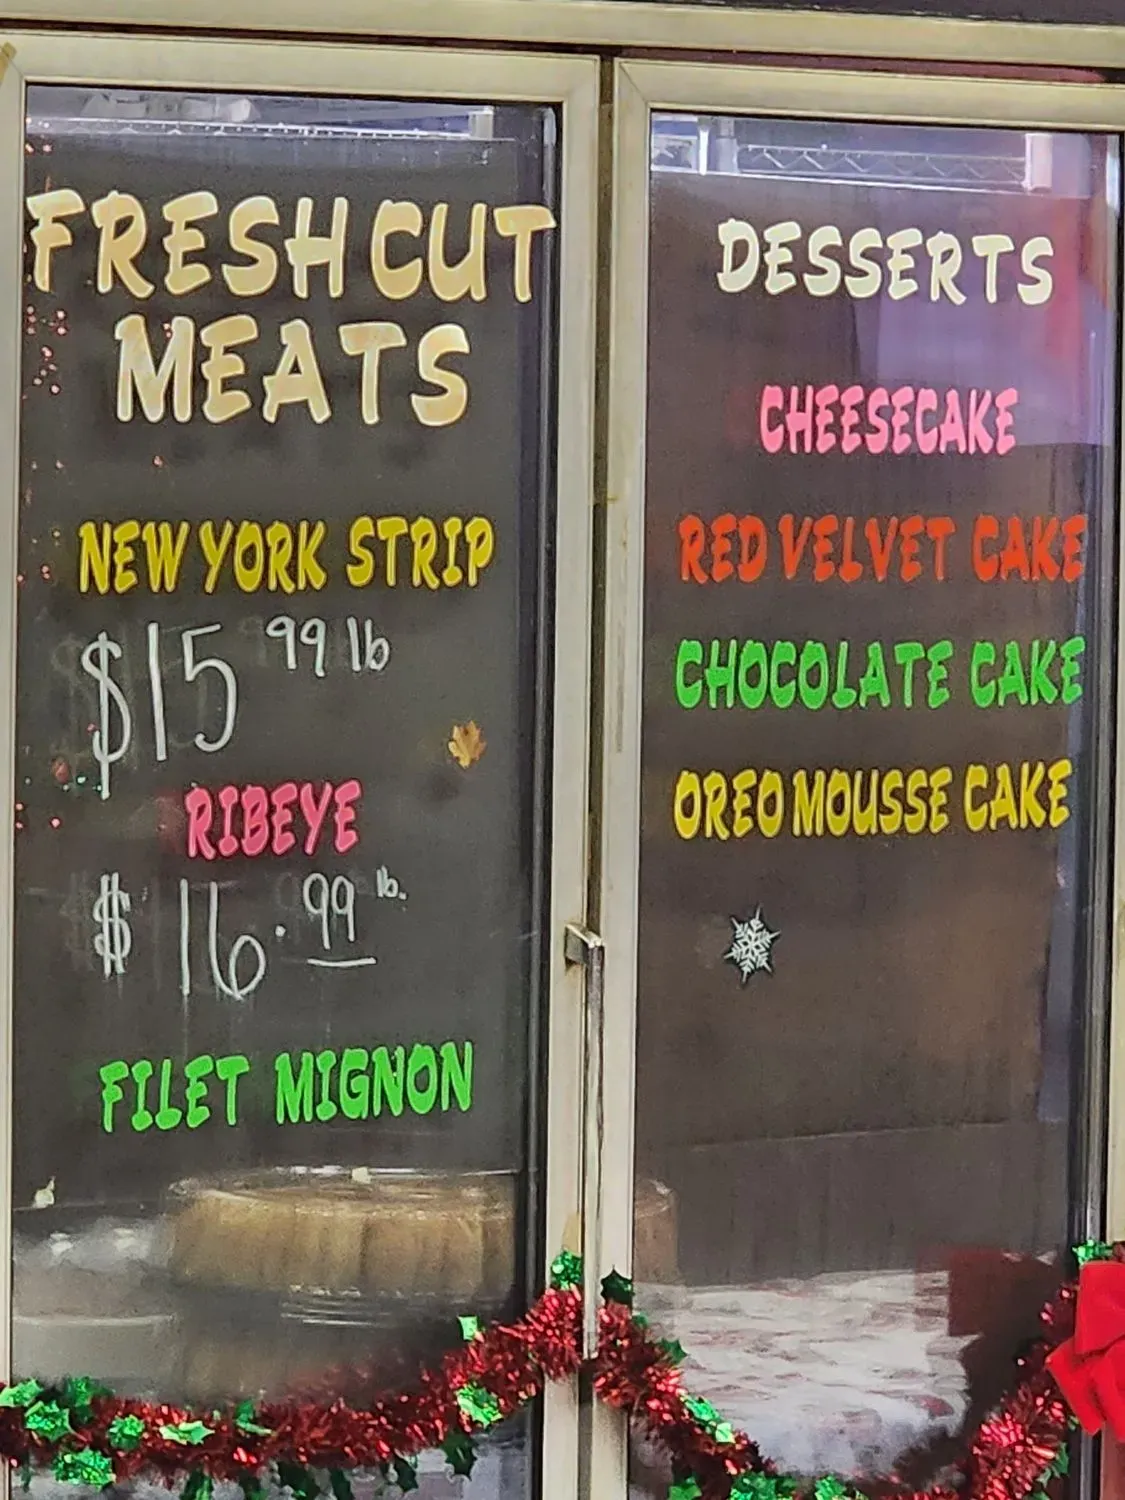 FRESH CUT
MEATS
NEW YORK STRIP
$15 99 lb
RIBEYE
$16.99 lb.
FILET MIGNON
DESSERTS
CHEESECAKE
RED VELVET CAKE
CHOCOLATE CAKE
OREO MOUSSE CAKE